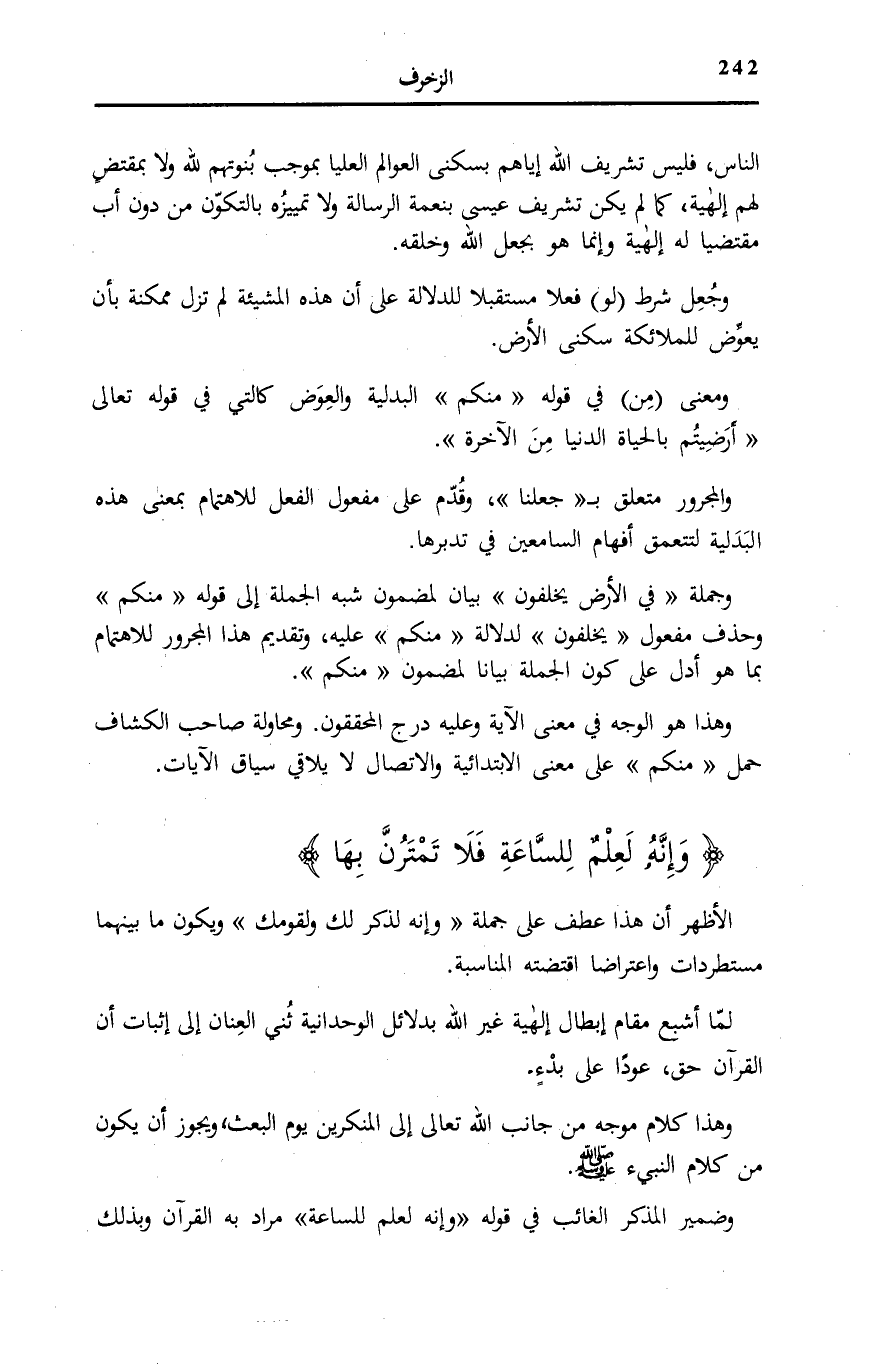 242
الزخرف
الناس، فليس تشريف الله إياهم بسكنى العوالم العليا بموجب بُنوتهم لله ولا بمقتضٍ
لهم إلٰهية، كما لم يكن تشريف عيسى بنعمة الرسالة ولا تمييزُه بالتكوّن من دون أب
مقتضيا له إلٰهية وإنما هو بجعل الله وخلقه.
وجُعِل شرط (لو) فعلا مستقبلا للدلالة على أن هذه المشيئة لم تزل ممكنة بأن
يعوِّض للملائكة سكنى الأرض.
ومعنى (مِن) في قوله « منكم » البدلية والعِوَض كالتي في قوله تعالى
« أَرَضِيتُم بالحياة الدنيا مِنَ الآخرة ».
والمجرور متعلق بـ« جعلنا »، وقُدّم على مفعول الفعل للاهتمام بمعنى هذه
البَدَلية لتتعمق أفهام السامعين في تدبرها.
وجملة « في الأرض يخلفون » بيان لمضمون شبه الجملة إلى قوله « منكم »
وحذف مفعول « يخلفون » لدلالة « منكم » عليه، وتقديم هذا المجرور للاهتمام
بما هو أدل على كون الجملة بيانا لمضمون « منكم ».
وهذا هو الوجه في معنى الآية وعليه درج المحققون. ومحاولة صاحب الكشاف
حمل « منكم » على معنى الابتدائية والاتصال لا يلاقي سياق الآيات.
﴿ وَإِنَّهُۥ لَعِلْمٌ لِلسَّاعَةِ فَلَا تَمْتَرُنَّ بِهَا ﴾
الأظهر أن هذا عطف على جملة « وإنه لذكر لك ولقومك » ويكون ما بينهما
مستطردات واعتراضا اقتضته المناسبة.
لمّا أشبع مقام إبطال إلٰهية غير الله بدلائل الوحدانية ثُني العِنان إلى إثبات أن
القرآن حق، عودًا على بدْءٍ.
وهذا كلام موجه من جانب الله تعالى إلى المنكرين يوم البعث، ويجوز أن يكون
من كلام النبيء ﷺ.
وضمير المذكر الغائب في قوله «وإنه لعلم للساعة» مراد به القرآن وبذلك